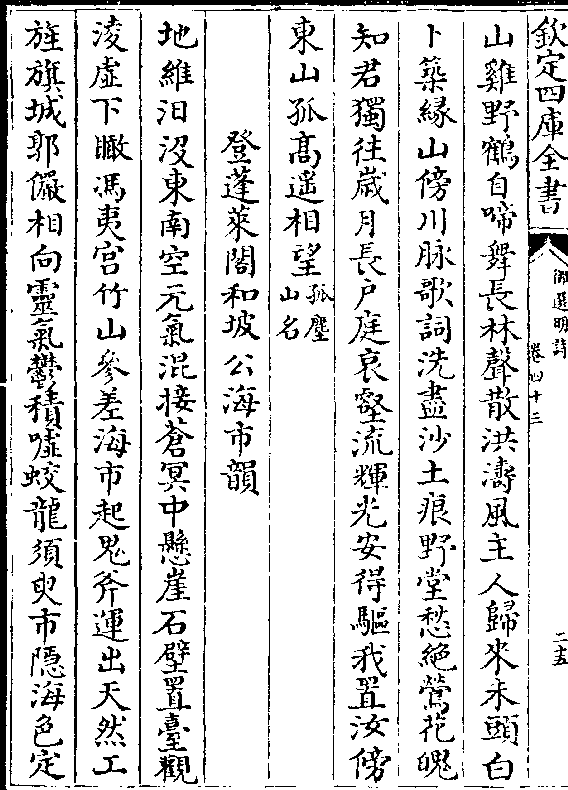 欽定四庫全書
御選明詩
卷四十三
二十五
山雞野鶴自啼舞長林聲散洪濤風主人歸來未頭白
卜築緣山傍川脉歌詞洗盡沙土痕野堂愁絶鶯花魄
知君獨往歲月長戶庭哀壑流輝光安得驅我置汝傍
東山孤髙遥相望孤塵山名
登蓬萊閣和坡公海市韻
地維汨沒東南空元氣混接蒼冥中懸崖石壁置臺觀
淩虛下瞰馮夷宫竹山參差海市起鬼斧運出天然工
旌旗城郭儼相向靈氣鬱積嘘蛟龍須臾市隱海色定